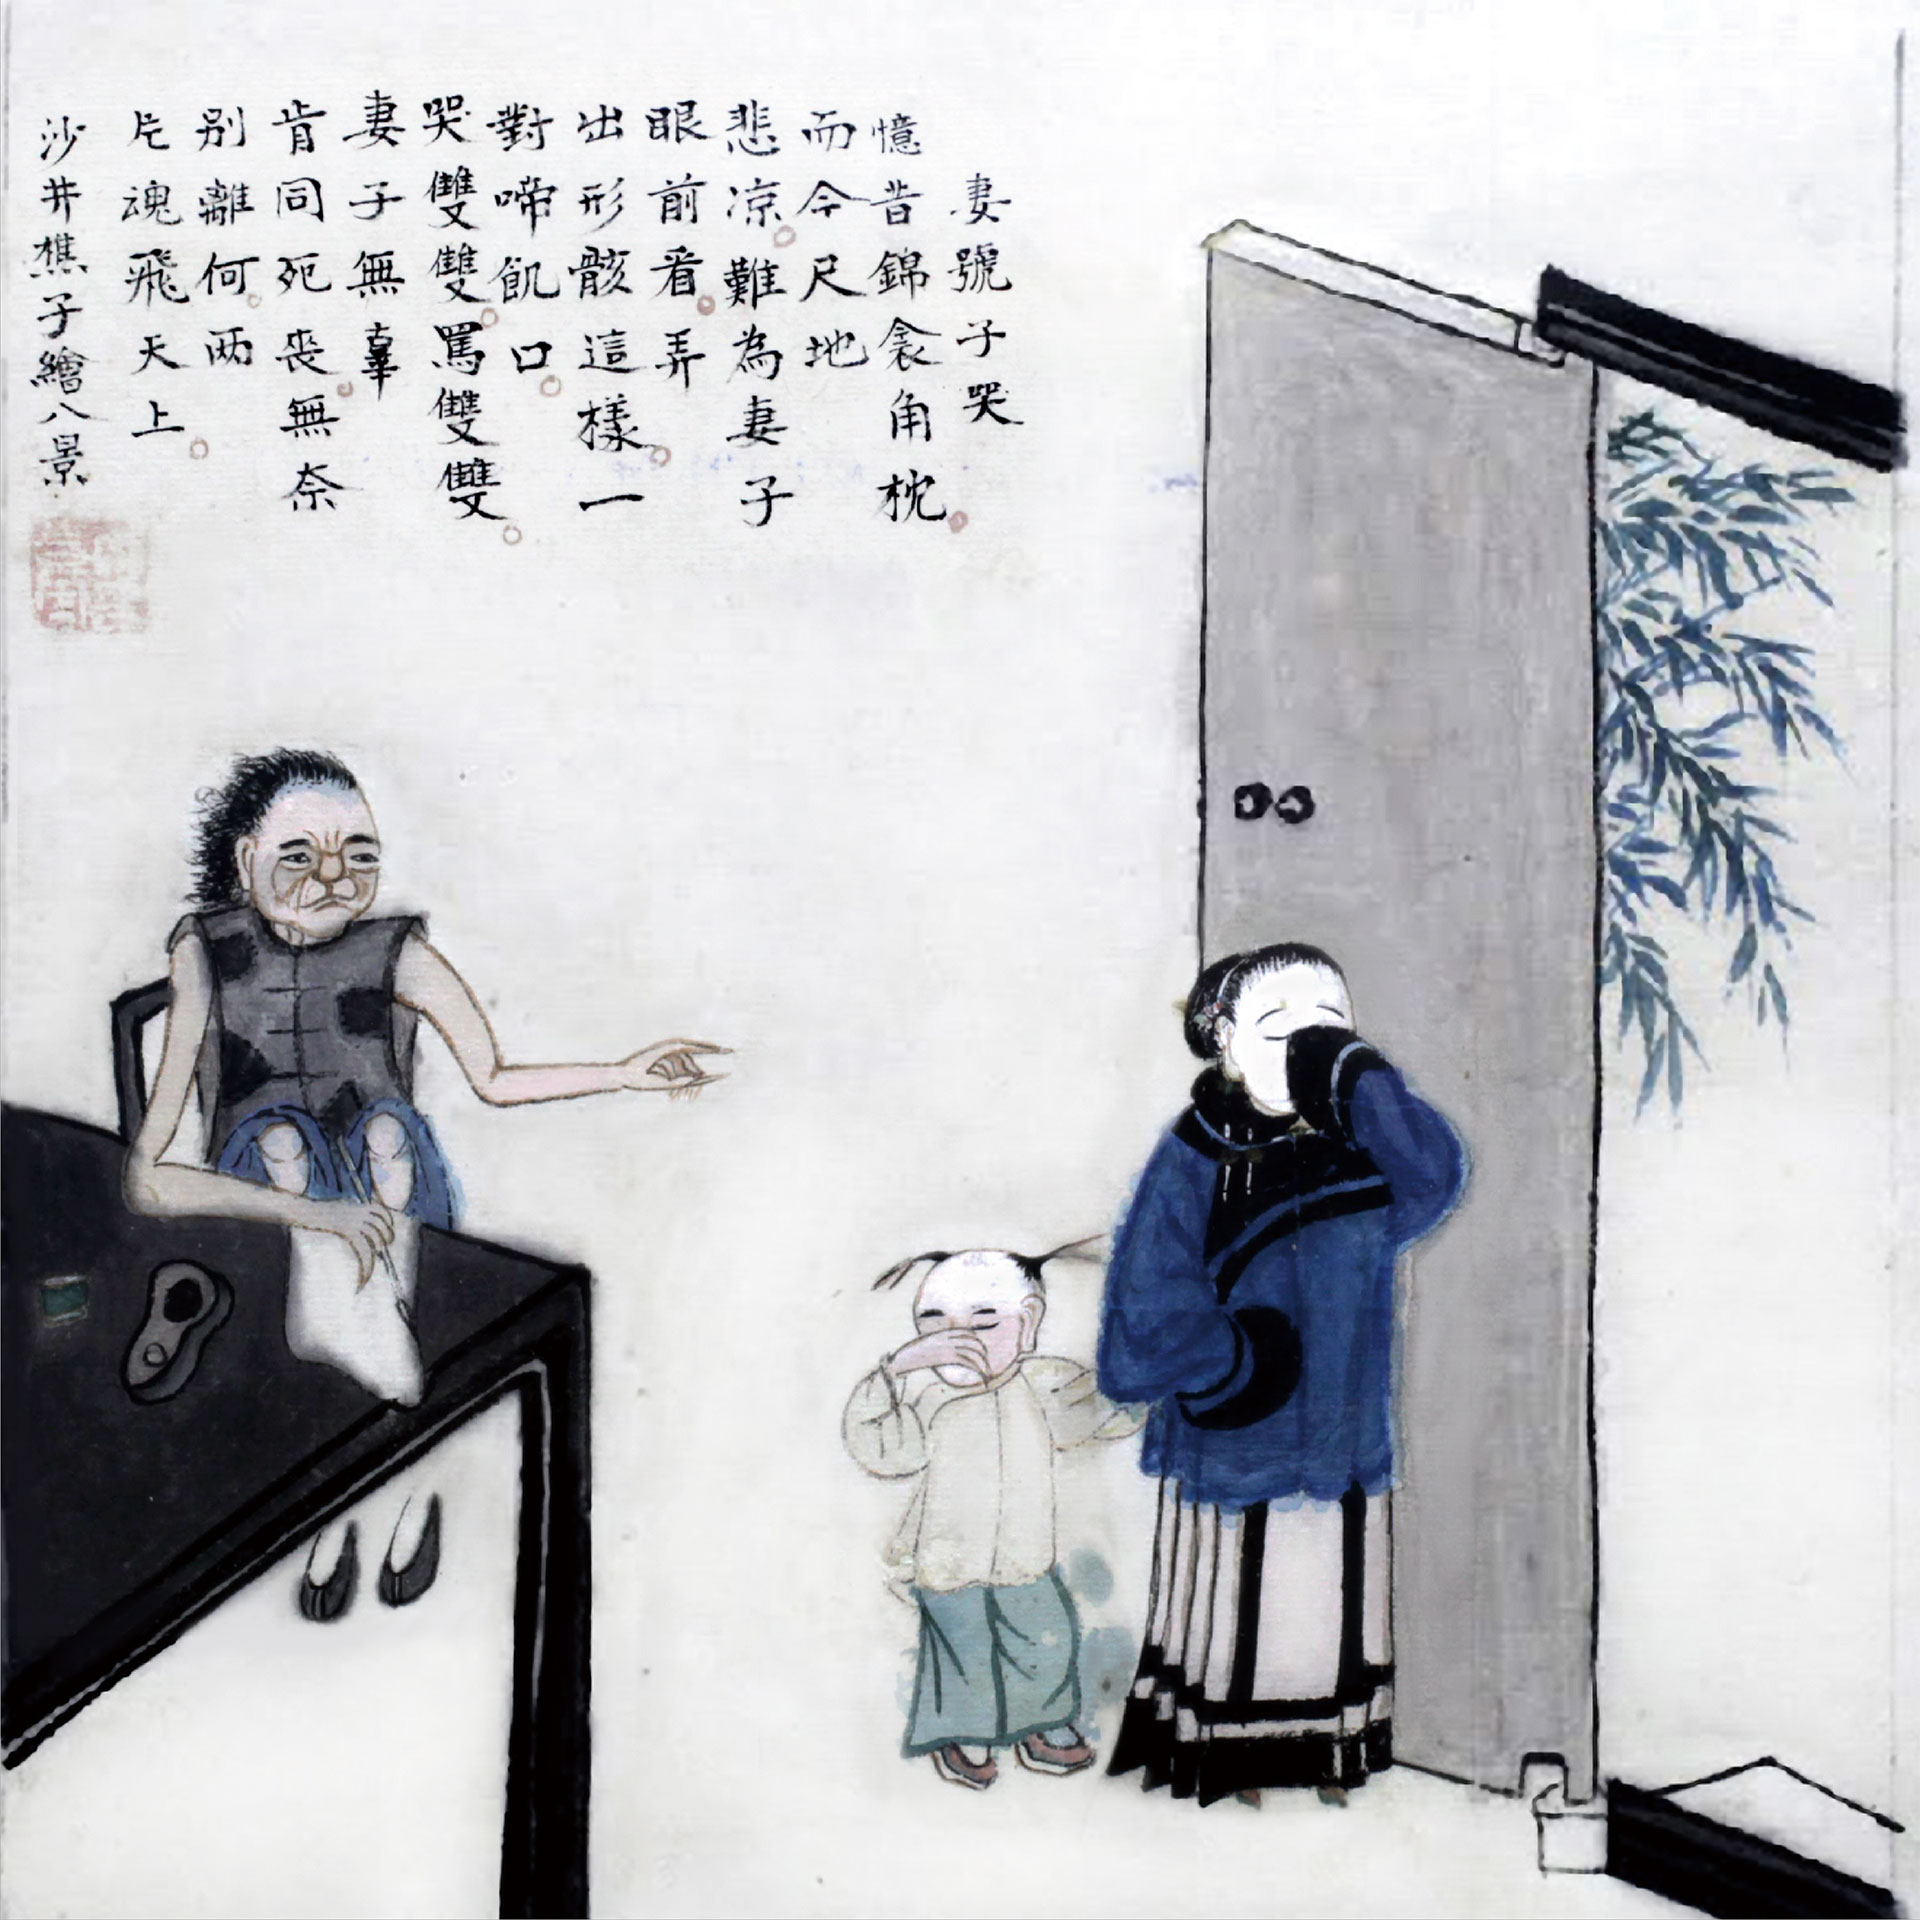 妻號子哭
憶昔錦衾角枕
而今尺地
悲凉難為妻子
眼前看弄
出形骸這樣一
對啼飢口
哭雙雙罵雙雙
妻子無辜
肯同死喪無奈
别離何兩
片魂飛天上
沙井樵子繪八景